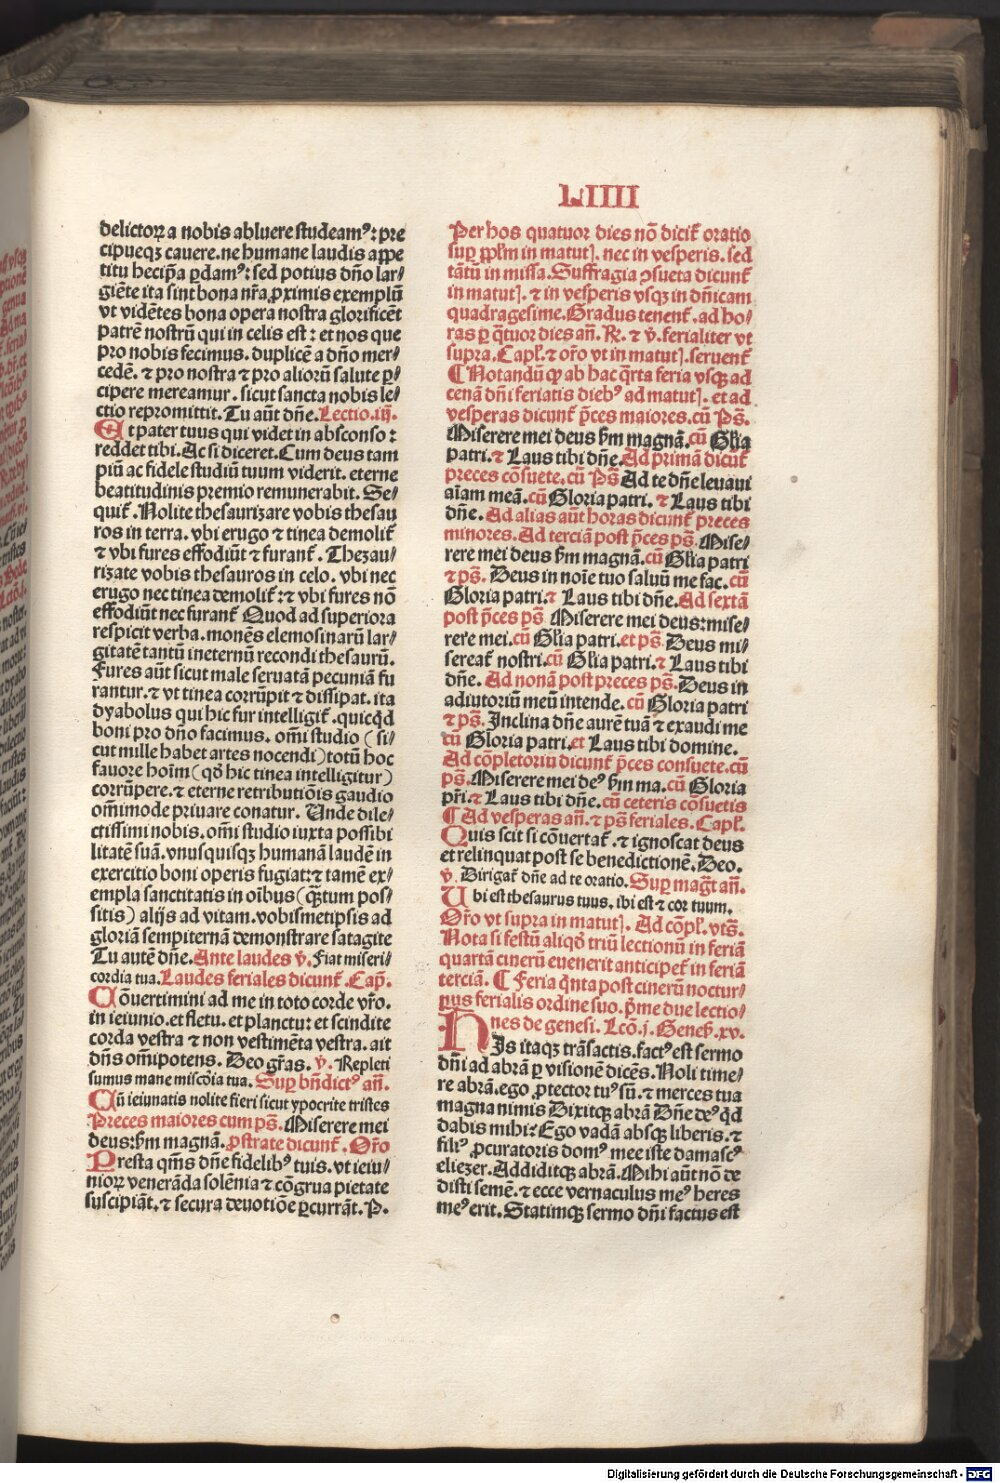 LIIII
delictoꝝ a nobis abluere studeamꝰ: pre
cipueqꝫ cauere. ne humane laudis appe
titu hec ip̄a ꝑdamꝰ: sed potius dño lar⸗
giēte ita sint bona nr̄a, ꝓximis exemplū
vt vidētes bona opera nostra glorificēt
patrē nostrū qui in celis est: et nos que
pro nobis fecimus. duplicē a dño mer⸗
cedē. ⁊ pro nostra ⁊ pro aliorū salute ꝑ⸗
cipere mereamur. sicut sancta nobis le⸗
ctio repromittit. Tu aūt dñe. Lectio.iij.
Et pater tuus qui videt in absconso:
reddet tibi. Ac si diceret. Cum deus tam
piū ac fidele studiū tuum viderit. eterne
beatitudinis premio remunerabit. Se⸗
quit̄. Nolite thesaurizare vobis thesau
ros in terra. vbi erugo ⁊ tinea demolit̄
⁊ vbi fures effodiūt ⁊ furant̄. Thezau⸗
rizate vobis thesauros in celo. vbi nec
erugo nec tinea demolit̄: ⁊ vbi fures nō
effodiūt nec furant̄ Quod ad superiora
respicit verba. monēs elemosinarū lar⸗
gitatē tantū in eternū recondi thesaurū.
Fures aūt sicut male seruatā pecuniā fu
rantur. ⁊ vt tinea corrūpit ⁊ dissipat. ita
dyabolus qui hic fur intelligit̄. quicq̄d
boni pro dño facimus. omī studio (si⸗
cut mille habet artes nocendi) totū hoc
fauore hoīm (qđ hic tinea intelligitur)
corrūpere. ⁊ eterne retributiōis gaudio
om̄imode priuare conatur. Unde dile⸗
ctissimi nobis. omī studio iuxta possibi
litatē suā. vnusquisqꝫ humanā laudē in
exercitio boni operis fugiat: ⁊ tamē ex⸗
empla sanctitatis in oībus (q̄tum pos⸗
sitis) alijs ad vitam. vobismetipsis ad
gloriā sempiternā demonstrare satagite
Tu autē dñe. Ante laudes ꝟ. Fiat miseri⸗
cordia tua. Laudes feriales dicunt̄. Cap̄.
Cōuertimini ad me in toto corde vr̄o.
in ieiunio. et fletu. et planctu: et scindite
corda vestra ⁊ non vestimēta vestra. ait
dñs om̄ipotens. Deo gr̄as. ꝟ. Repleti
sumus mane miscōia tua. Suꝑ bñdictꝰ añ.
Cū ieiunatis nolite fieri sicut ypocrite tristes
Preces maiores cum pš. Miserere mei
deus: ẜm magnā. ꝓstrate dicunt̄. Or̄o
Presta qm̄s dñe fidelibꝰ tuis. vt ieiu⸗
nioꝝ venerāda solēnia ⁊ cōgrua pietate
suscipiāt. ⁊ secura deuotiōe ꝑcurrāt. P.
Per hos quatuor dies nō dicit̄ oratio
suꝑ pplm̄ in matuť. nec in vesperis. sed
tātū in missa. Suffragia ꝯsueta dicunt̄
in matuť. ⁊ in vesperis vsqꝫ in dñicam
quadragesime. Gradus tenent̄. ad ho⸗
ras ꝑ q̄tuor dies añ. ℟. ⁊ ꝟ. ferialiter vt
supra. Capľ. ⁊ or̄o vt in matuť. seruent̄
¶ Notandū ꝙ ab hac q̄rta feria vsqꝫ ad
cenā dñi feriatis diebꝰ ad matuť. et ad
vesperas dicunt̄ p̄ces maiores. cū Pš.
Miserere mei deus ẜm magnā. cū Glīa
patri. ⁊ Laus tibi dñe. Ad primā dicūt̄
preces cōsuete. cū Pš Ad te dñe leuaui
aīam meā. cū Gloria patri. ⁊ Laus tibi
dñe. Ad alias aūt horas dicunt̄ preces
minores. Ad terciā post p̄ces pš. Mise⸗
rere mei deus ẜm magnā. cū Glīa patri
⁊ pš. Deus in noīe tuo saluū me fac. cū
Gloria patri. ⁊ Laus tibi dñe. Ad sextā
post p̄ces pš Miserere mei deus: mise⸗
rere mei. cū Glīa patri. et pš Deus mi⸗
sereat̄ nostri. cū Glīa patri. ⁊ Laus tibi
dñe. Ad nonā post preces pš. Deus in
adiutoriū meū intende. cū Gloria patri
⁊ pš. Inclina dñe aurē tuā ⁊ exaudi me
cū Gloria patri. et Laus tibi domine.
Ad cōpletoriū dicunt̄ p̄ces consuete. cū
pš. Miserere mei deꝰ ẜm ma. cū Gloria
pr̄i. ⁊ Laus tibi dñe. cū ceteris cōsuetis
¶ Ad vesperas añ. ⁊ pš feriales. Capľ.
Quis scit si cōuertat̄. ⁊ ignoscat deus
et relinquat post se benedictionē. Deo.
ꝟ. Dirigat̄ dñe ad te oratio. Suꝑ mag̃t añ.
Ubi est thesaurus tuus. ibi est ⁊ cor tuum.
Or̄o vt supra in matuť. Ad cōpľ. vtš.
Nota si festū aliqđ triū lectionū in feriā
quartā cinerū euenerit anticipet̄ in feriā
terciā. ¶ Feria q̄nta post cinerū noctur⸗
nus ferialis ordine suo. p̄me due lectio⸗
nes de genesi. Lcō.j. Geneš.xv.
HIs itaqꝫ trāsactis. factꝰ est sermo
dñi ad abrā ꝑ visionē dicēs. Noli time⸗
re abrā. ego ꝓtector tuꝰ sū. ⁊ merces tua
magna nimis Dixitqꝫ abrā Dñe deꝰ qđ
dabis mihi: Ego vadā absqꝫ liberis. ⁊
filiꝰ ꝓcuratoris domꝰ mee iste damascꝰ
eliezer. Addiditqꝫ abrā. Mihi aūt nō de
disti semē. ⁊ ecce vernaculus meꝰ heres
meꝰ erit. Statimqꝫ sermo dñi factus est
Digitalisierung gefördert durch die Deutsche Forschungsgemeinschaft - DFG